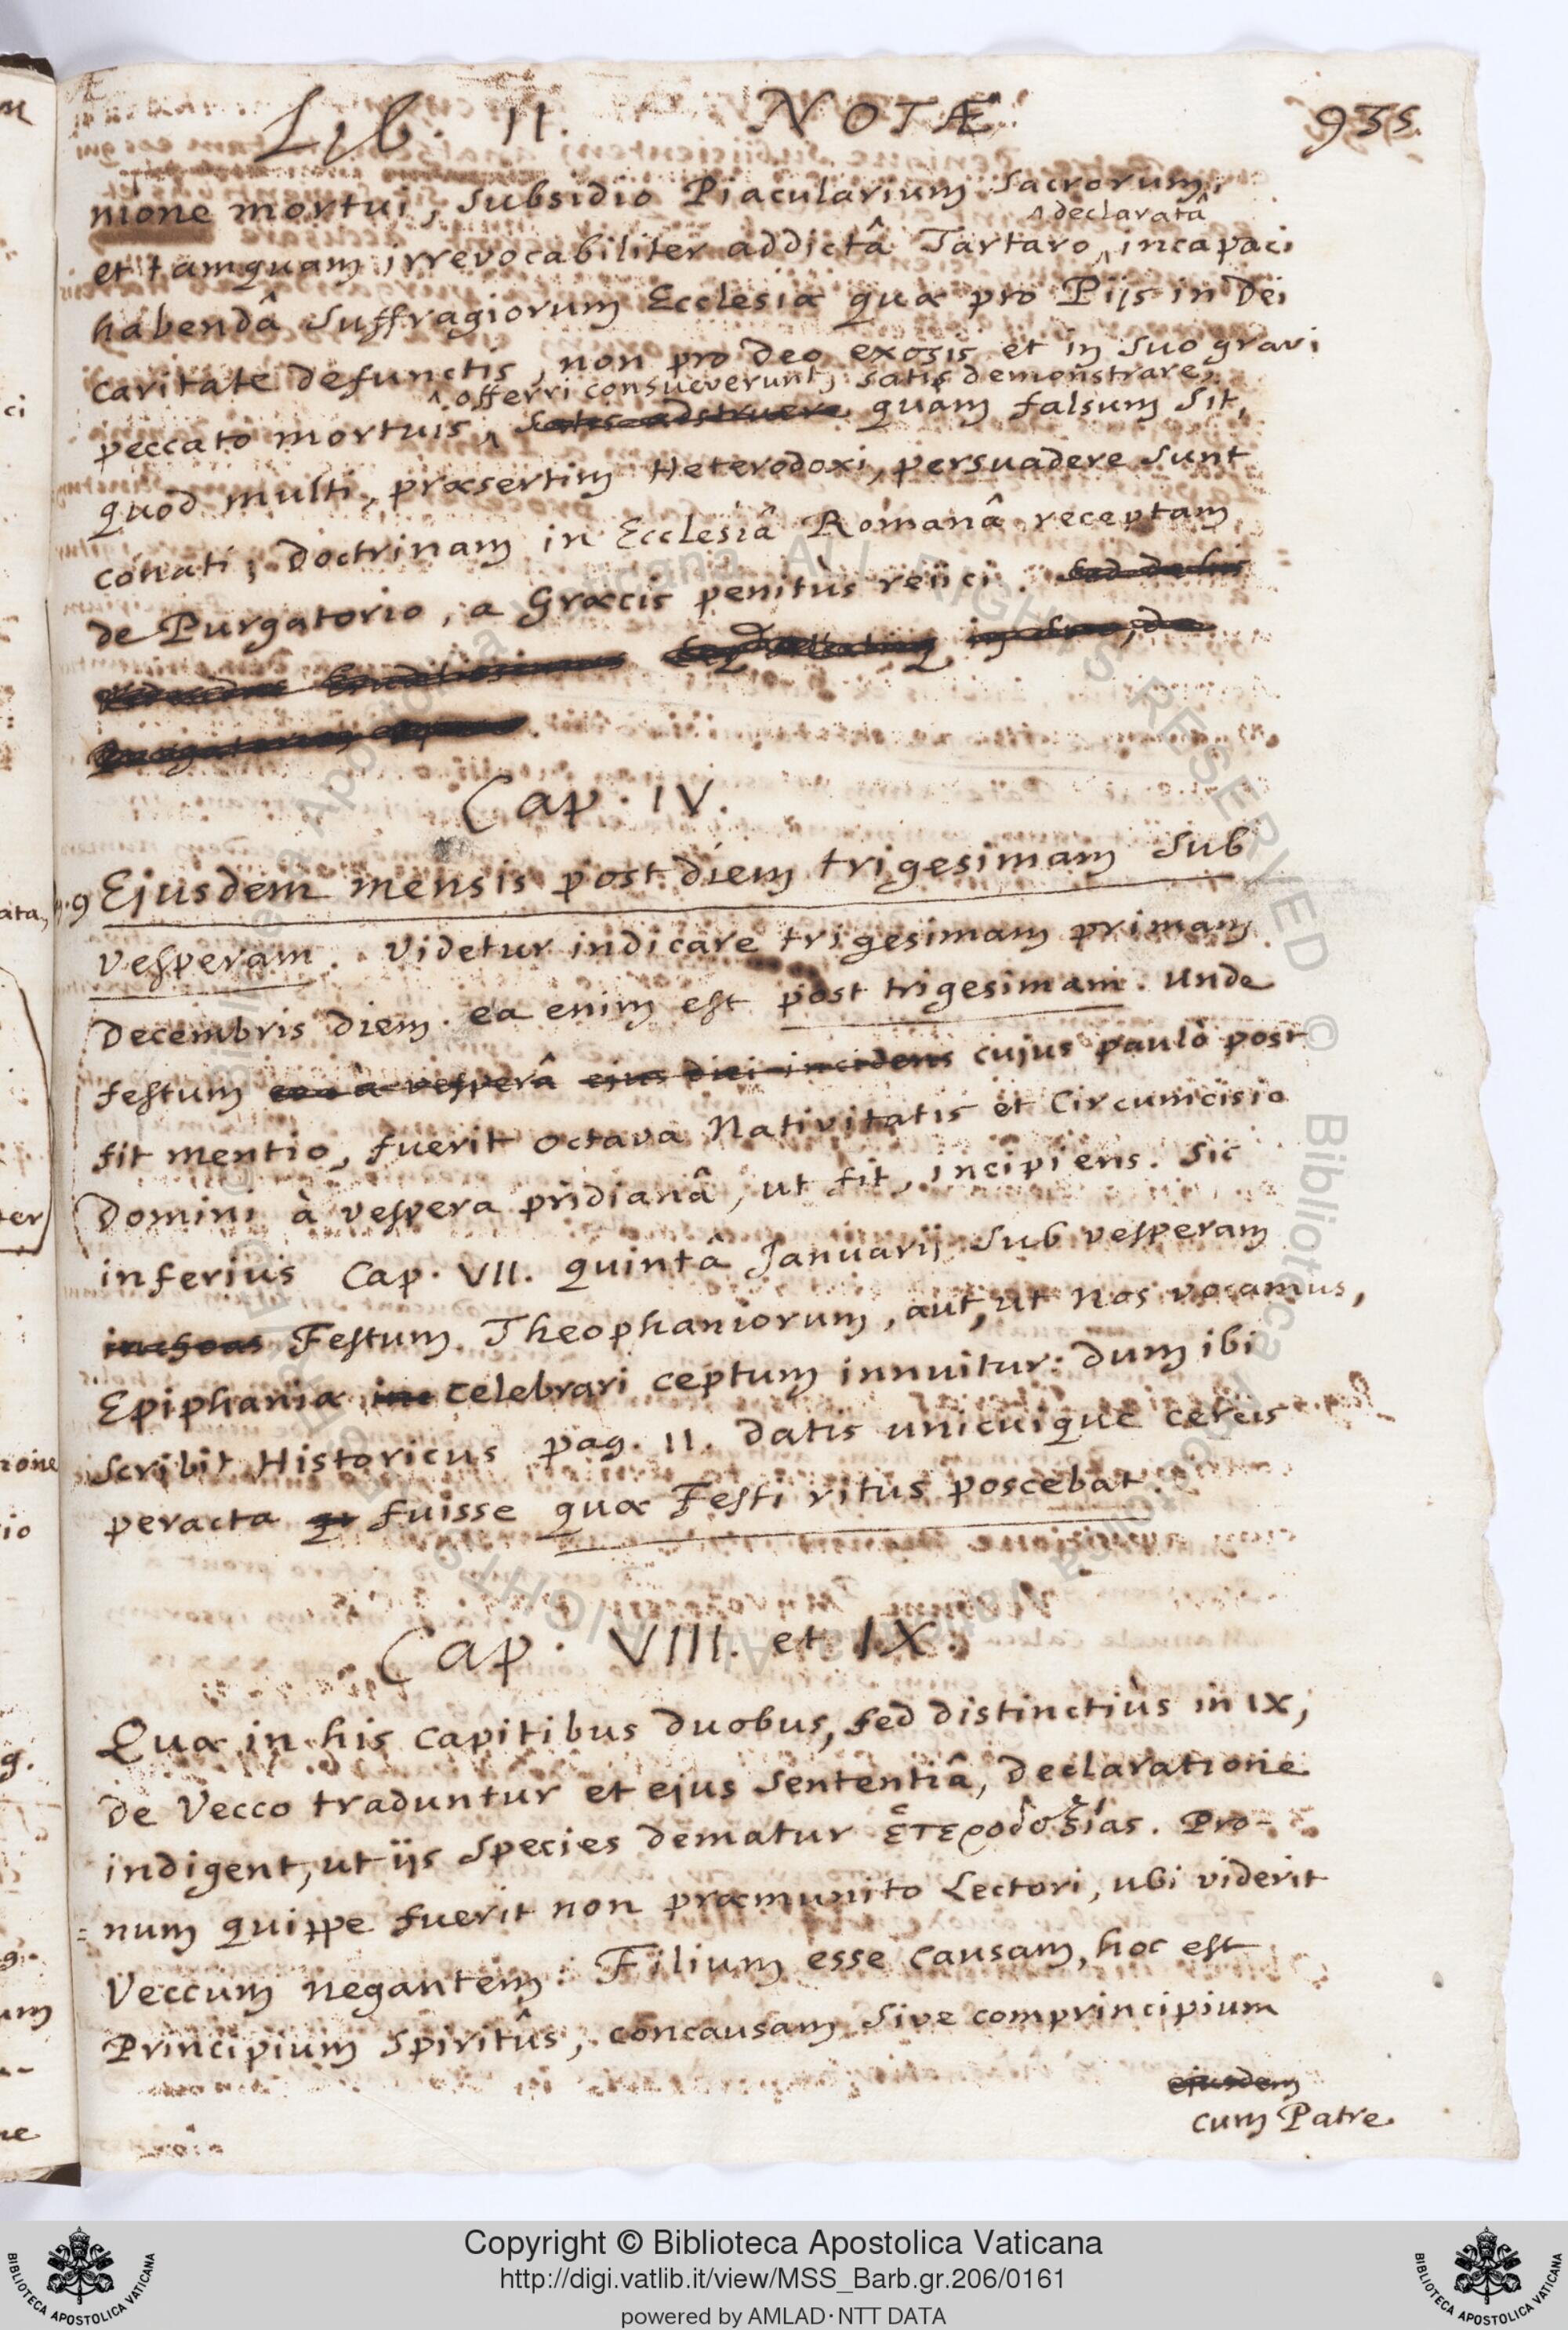 Lib. II. NOTÆ 935.
nione mortui, subsidio Piacularium sacrorum,
^ declaratâ
et tamquam irrevocabiliter addictâ Tartaro, incapaci
habendâ suffragiorum Ecclesiæ quæ pro Piis in Dei
caritate defunctis, non pro deo exosis et in suo gravi
^ offerri consueverunt, satis demonstrare,
peccato mortuis, satis adstruere quàm falsum sit,
quod multi, præsertim Heterodoxi, persuadere sunt
conati; doctrinam in Ecclesiâ Romanâ receptam
de Purgatorio, a Græcis penitùs reiici. Sed de his
Cap. IV.
p.9 Ejusdem mensis post diem trigesimam sub
vesperam. Videtur indicare trigesimam primam
Decembris diem. ea enim est post trigesimam. Unde
festum à vesperâ ejus diei incidens cujus paulò post
fit mentio, fuerit octava Nativitatis et Circumcisio
Domini à vespera pridianâ, ut fit, incipiens. Sic
inferius Cap. VII. quintâ Januarij sub vesperam
inchoas Festum Theophaniorum, aut, ut nos vocamus,
Epiphaniæ inc celebrari ceptum innuitur: dum ibi
scribit Historicus pag. 11. datis unicuique cereis
peracta qu fuisse quæ Festi ritus poscebat.
Cap. VIII. et IX.
Quæ in his capitibus duobus, sed distinctiùs in IX,
de Vecco traduntur et ejus sententiâ, declaratione
indigent, ut ijs species dematur ἑτεροδοξίας. Pro-
= num quippe fuerit non præmunito Lectori, ubi viderit
Veccum negantem: Filium esse causam, hoc est
Principium Spiritûs, concausam sive comprincipium
ejusdem
cum Patre
Copyright © Biblioteca Apostolica Vaticana
http://digi.vatlib.it/view/MSS_Barb.gr.206/0161
powered by AMLAD·NTT DATA